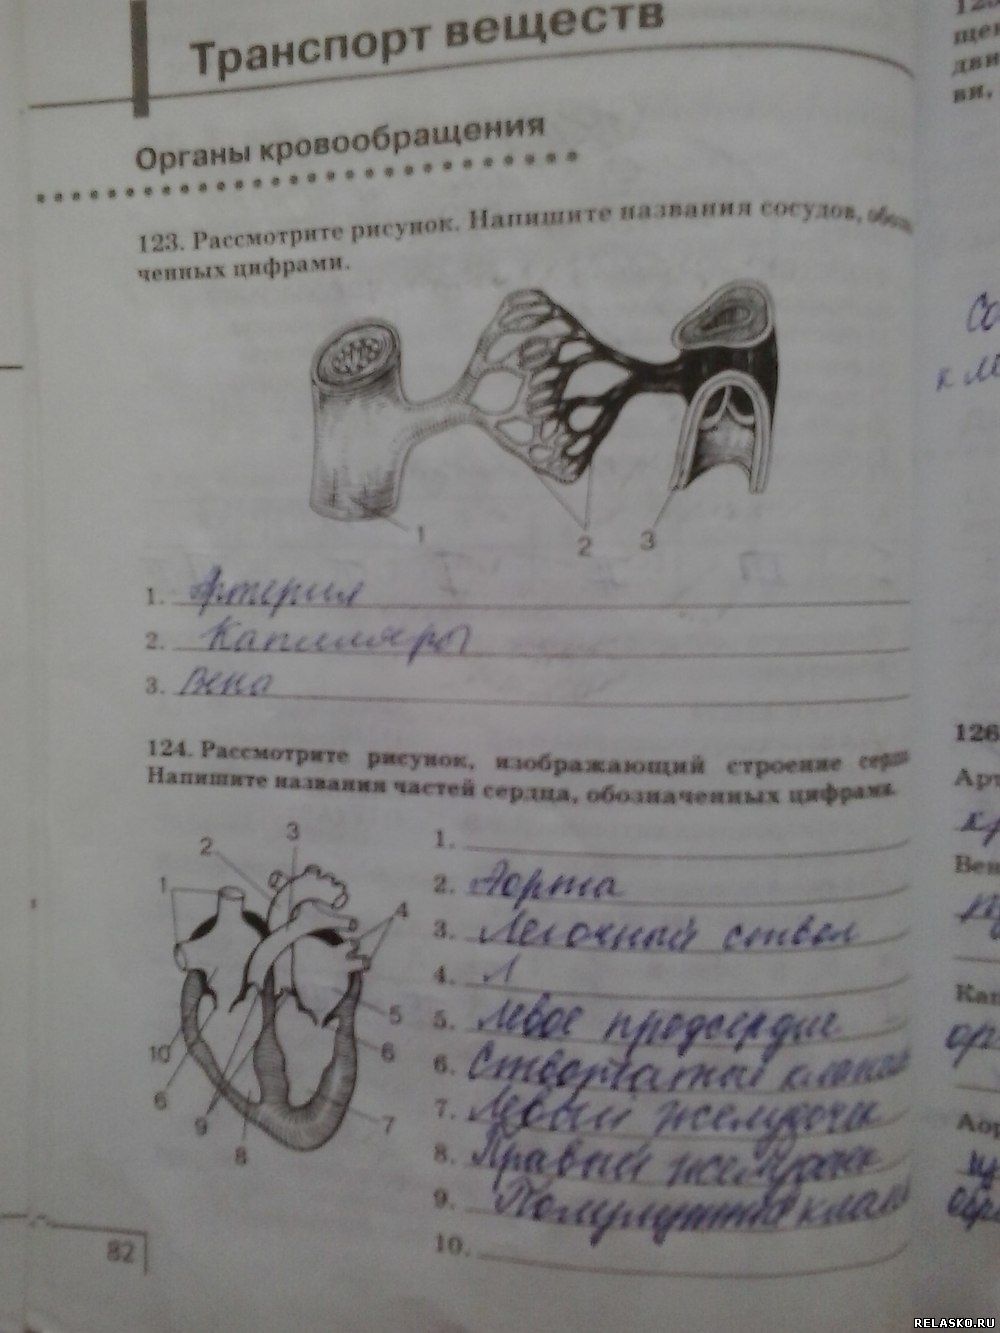 Транспорт веществ
Органы кровообращения
123. Рассмотрите рисунок. Напишите названия сосудов,
ченных цифрами.
1
2
3
1. Артерия
2. Капилляры
3. Вена
124. Рассмотрите рисунок, изображающий строение
Напишите названия частей сердца, обозначенных цифрами.
3
2
1
4
5
10
6
6
9
7
8
1.
2. Аорта
3. Легочный ствол
4. Л
5. Левое предсердие
6. Створчатый
7. Левый желудочек
8. Правый желудочек
9.
10.
82
126
RELASKO.RU